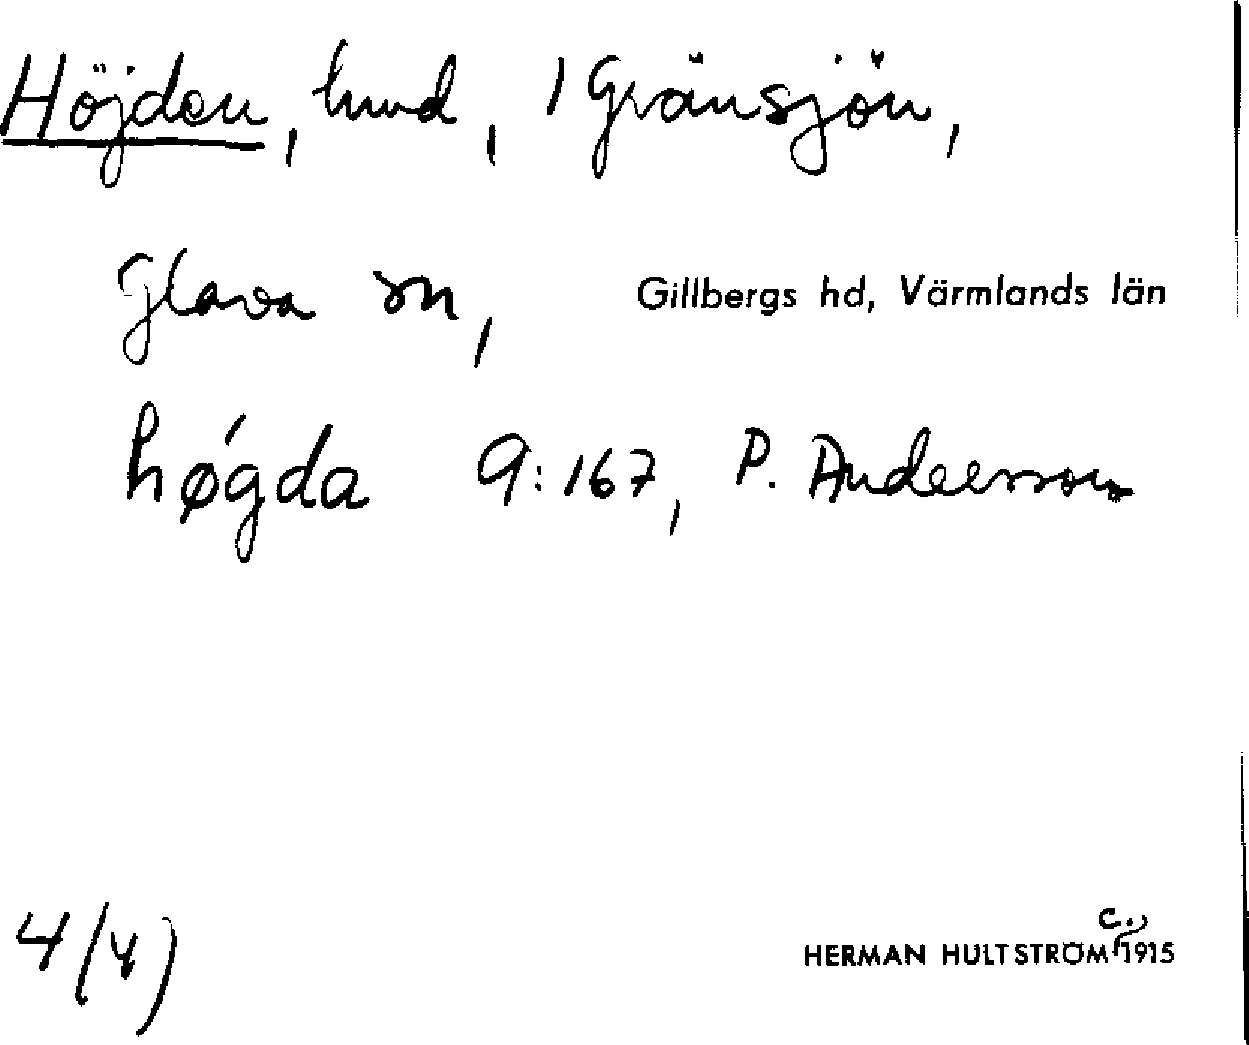 Höjden, hmd, 1 Gränsjön,
Glava sn, Gillbergs hd, Värmlands län
høgda 9:167, P. Andersson
4/(4)
HERMAN HULTSTRÖM c., 1915